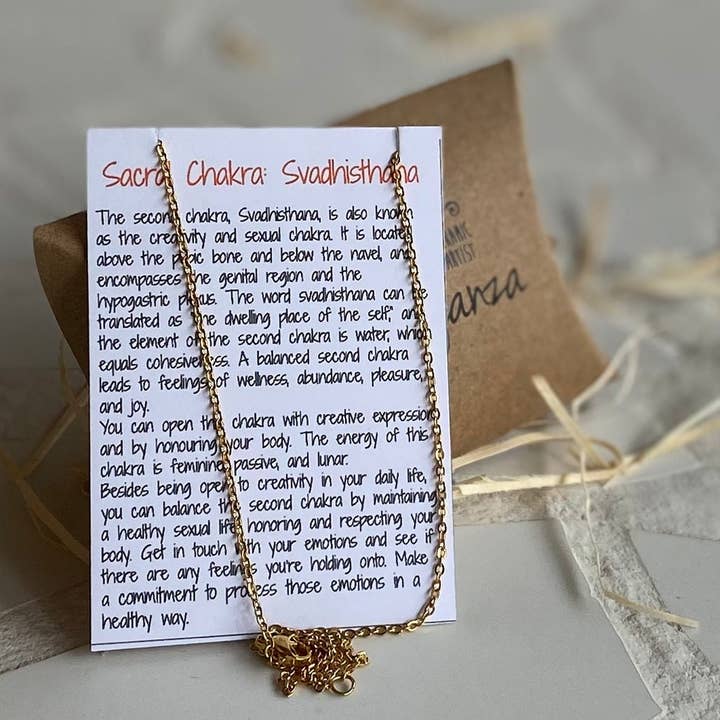 Sacral Chakra: Svadhisthana
The second chakra, Svadhisthana, is also known
as the creativity and sexual chakra. It is located
above the pubic bone and below the navel, and
encompasses the genital region and the
hypogastric plexus. The word svadhisthana can be
translated as the dwelling place of the self", and
the element of the second chakra is water, which
equals cohesiveness. A balanced second chakra
leads to feelings of wellness, abundance, pleasure,
and joy.
You can open this chakra with creative expression
and by honouring your body. The energy of this
chakra is feminine, passive, and lunar.
Besides being open to creativity in your daily life,
you can balance the second chakra by maintaining
a healthy sexual life, honoring and respecting your
body. Get in touch with your emotions and see if
there are any feelings you're holding onto. Make
a commitment to process those emotions in a
healthy way.